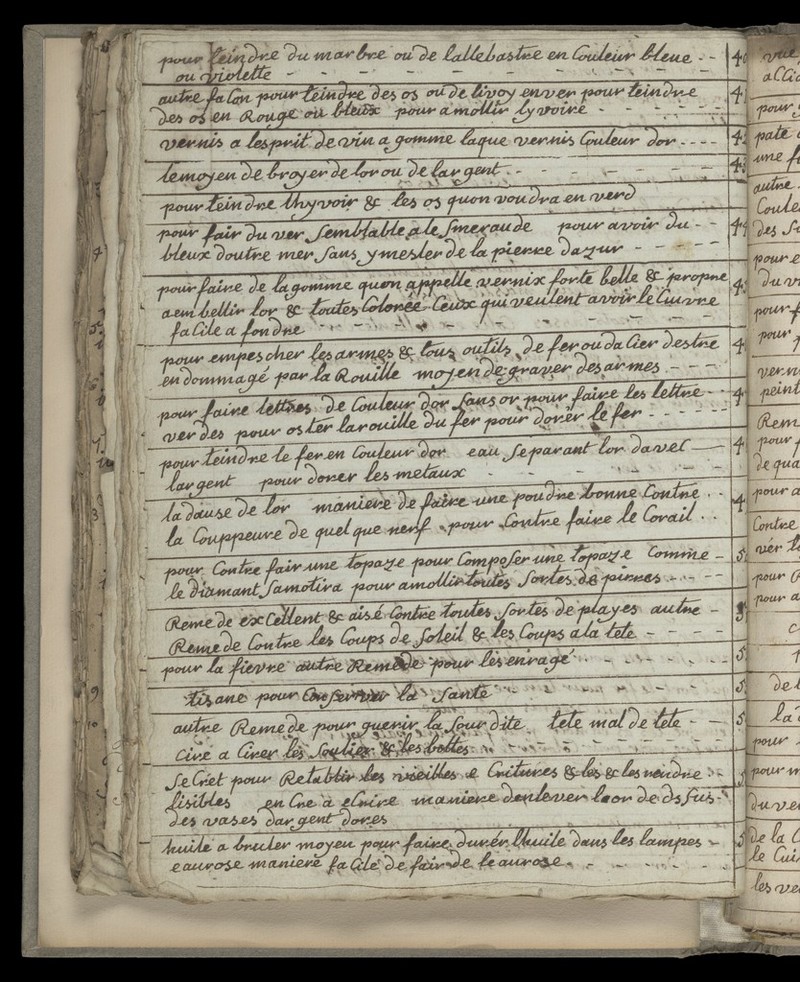 pour teindre du marbre ou de lallebastre en Couleur bleue - - 4
ou violette - - - - - - - -
autre faCon pour teindre des os ou de livoy enver pour teindre 4
des os en Rouge ou bleux pour amollir lyvoire - - - - -
vernis a lesprit de vin a gomme laque vernis Couleur dor - - - - 4
lemoyen de broyer de lor ou de largent - - - - 4
pour teindre lhyvoir & les os quon voudra en verd
pour fair du ver semblable ale smeraude pour avoir du - - 4
bleux doutre mer sans y mesler de la pierre dazur - - - -
pour faire de lagomme quon appelle vernix forte belle & propre 4
a embellir lor & toutes Colorée Ceux qui veulent avoir le Cuivre
faCile a fondre - - - - - - - -
pour empescher les armes & tous outils de fer ou daCier destre 4
en dommagé par la Rouille moyen de graver des armes - - - -
pour faire lettres de Couleur dor sans or pour faire les lettre - - 4
verdes pour oster larouille du fer pour dorer le fer - - - -
pour teindre le fer en Couleur dor eau separant lor davel — 4
largent pour dorer les metaux - - - - -
la dause de lor maniere de faire une poudre bonne Contre - - 4
la Couppeure de quelque nerf pour Contre faire le Corail - -
pour Contre fair une topaze pour Composer une topaze Comme - 5
le diamant samotira pour amollir toutes sortes de pirres - - - -
Remede exCellent & aisé Contre toutes sortes de playes autre - 5
Remede Contre les Coups de soleil & les Coups a la tete - - - -
pour la fievre autre Remede pour les enragé - - - - 5
tisane pour Conserver la santé - - - - 5
autre Remede pour guerir la sourdite tete mal de tete - - 5
Cire a Cirer les soulier & les bottes - - - - - -
seCret pour Retablir les vieilles e Critures & les & les rendre - 5
lisibles en Cre a eCrire maniere denlever lor de dssus -
des vases dargent dores
huile a bruler moyen pour faire durér lhuile dans les lampes - 5
eaurose maniere faCile de fair de leaurose - - - -
vue
pour
paté
une f
autre
Coule
des
pour e
du v
pour f
pour
vern
peint
Rem
pour
de qua
pour a
Contre
vér
pour
pour a
C
de l
la
pour
pour m
du ve
de la C
le Cui
les ve